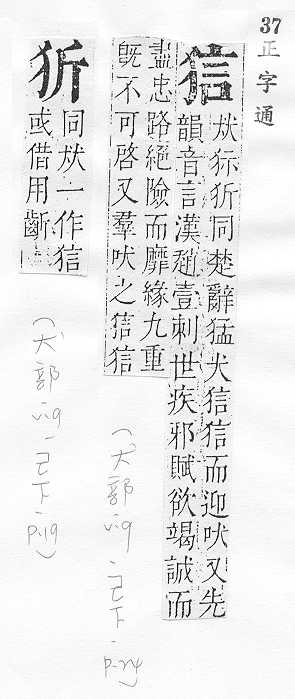 37 正字通
狺
犾狋㹞同楚辭猛犬狺狺而迎吠又先
韻音言漢趙壹刺世疾邪賦欲竭誠而
盡忠路絕險而靡緣九重
旣不可啓又羣吠之狺狺
㹞
同犾一作狺
或借用齗
(犬部 v.9, 己下, p.24)
(犬部 v.9, 己下, p.19)